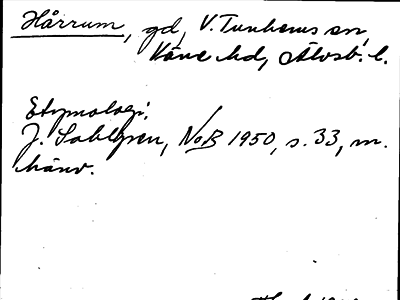 Hårrum, gd, V. Tunhems sn,
Väne hd, Älvsb. l.
Etymologi:
J. Sahlgren, NoB 1950, s. 33, m.
hänv.